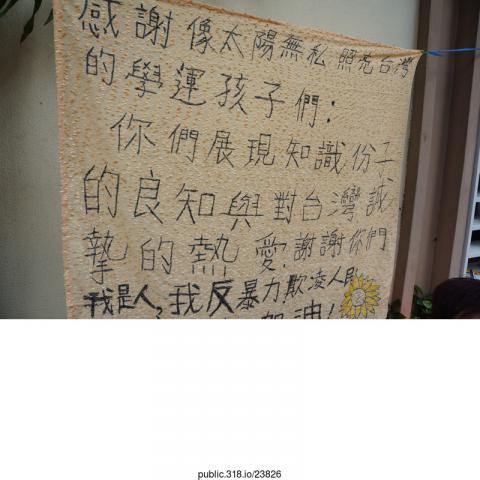 感謝像太陽無私照亮台灣
的學運孩子們：
你們展現知識份子
的良知與對台灣誠
摯的熱愛謝謝你們
我是人，我反暴力欺凌人民
加油！
public.318.io/23826